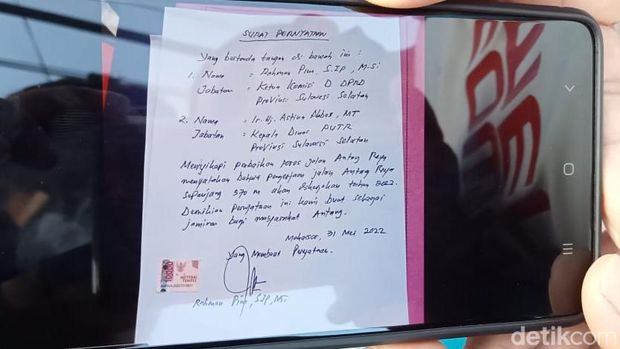 SURAT PERNYATAAN
Yang bertanda tangan di bawah ini :
1. Nama : Rahman Pina, S.IP, M.Si
Jabatan : Ketua Komisi D DPRD
Provinsi Sulawesi Selatan
2. Nama : Ir. Hj. Astina Abbas, MT
Jabatan : Kepala Dinas PUTR
Provinsi Sulawesi Selatan
Menyikapi perbaikan poros jalan Antang Raya
menyatakan bahwa pengerjaan jalan Antang Raya
sepanjang 570 m akan dikerjakan tahun 2022.
Demikian pernyataan ini kami buat sebagai
jaminan bagi masyarakat Antang.
Makassar, 31 Mei 2022
Yang Membuat Pernyataan
10000
METERAI
TEMPEL
Rahman Pina, S.IP, M.Si
detikcom